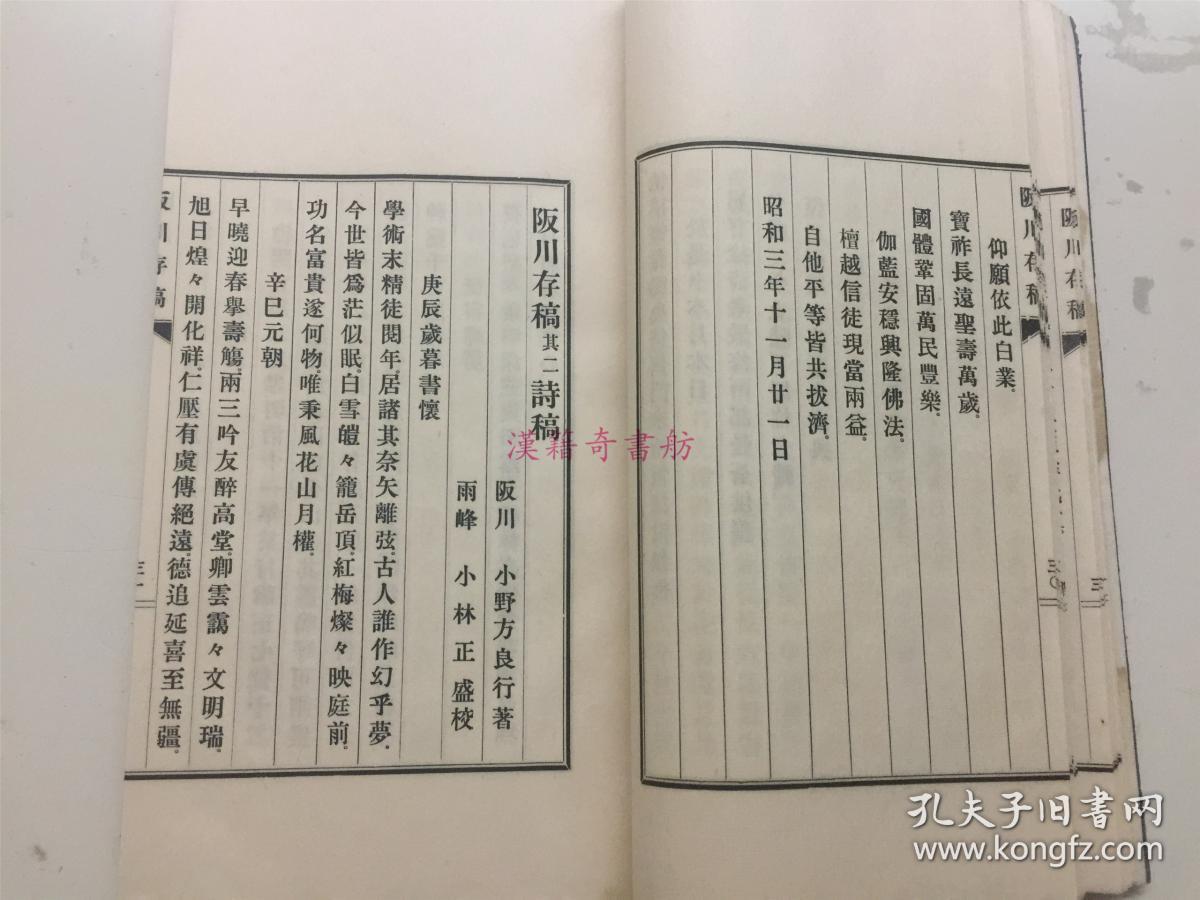 阪川存稿
三〇
阪川存稿
仰願依此白業。
寶祚長遠聖壽萬歲。
國體鞏固萬民豐樂。
伽藍安穩興隆佛法。
檀越信徒現當兩益。
自他平等皆共拔濟。
昭和三年十一月廿一日
阪川存稿其二詩稿
阪川 小野方良行著
雨峰 小林正盛校
庚辰歲暮書懷
學術末精徒閱年。居諸其奈矢離弦。古人誰作幻乎夢。
今世皆爲茫似眠。白雪皚々籠岳頂。紅梅燦々映庭前。
功名富貴遂何物。唯秉風花山月權。
辛巳元朝
早曉迎春擧壽觴。兩三吟友醉高堂。卿雲靄々文明瑞。
旭日煌々開化祥。仁壓有虞傳絕遠。德追延喜至無疆。
阪川存稿
三一
漢籍奇書舫
孔夫子旧书网
www.kongfz.com